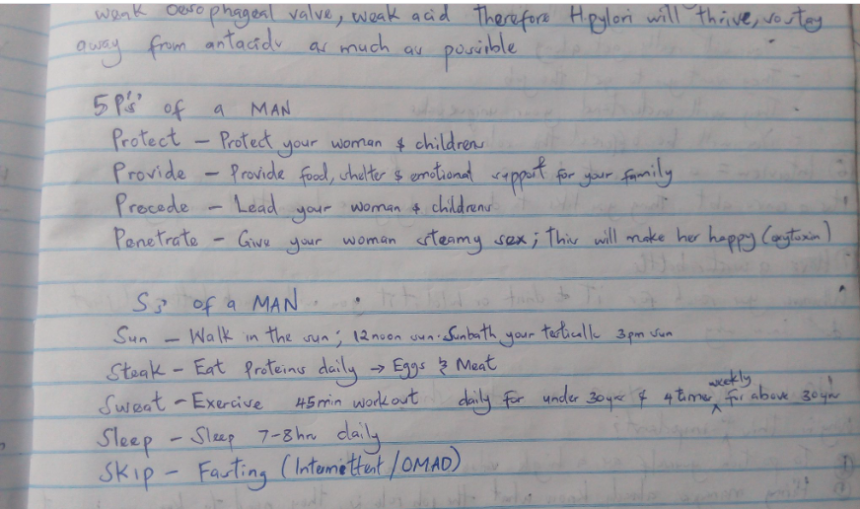 weak Oesophageal valve, weak acid Therefore H.pylori will thrive, so stay
away from antacids as much as possible
5P's' of a MAN
Protect - Protect your woman & children
Provide - Provide food, shelter & emotional support for your family
Precede - Lead your woman & children
Penetrate - Give your woman steamy sex; This will make her happy (oxytoxin)
S's of a MAN
Sun - Walk in the sun; 12noon sun. Sunbath your testicalls 3pm sun
Steak - Eat Proteins daily → Eggs & Meat
Sweat - Exercise 45min workout daily for under 30yrs & 4 times weekly for above 30yrs
Sleep - Sleep 7-8hrs daily
SKIP - Fasting (Intermittent/OMAD)